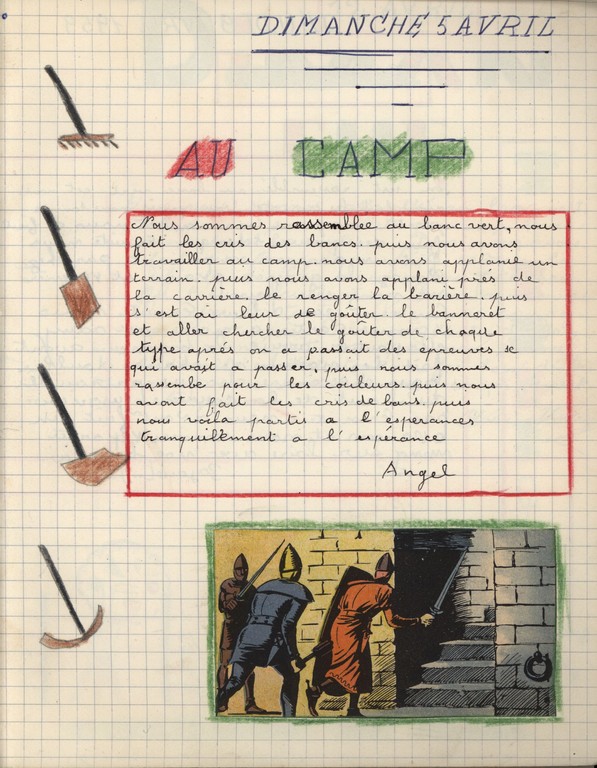 DIMANCHE 5 AVRIL
AU CAMP
Nous sommes rassemblee au banc vert, nous
fait les cris des bancs. puis nous avons
travailler au camp. nous avons applanie un
terrain. puis nous avons applani prés de
la carrière. le renger la barière. puis
s'est ai leur de goûter. le banneret
et aller chercher le goûter de chaque
type aprés on a passait des epreuves se
qui avait a passer, puis nous sommes
rassembe pour les couleurs. puis nous
avont fait les cris de bans. puis
nous voila partis a l'esperances
tranquillement a l'espérance
Angel